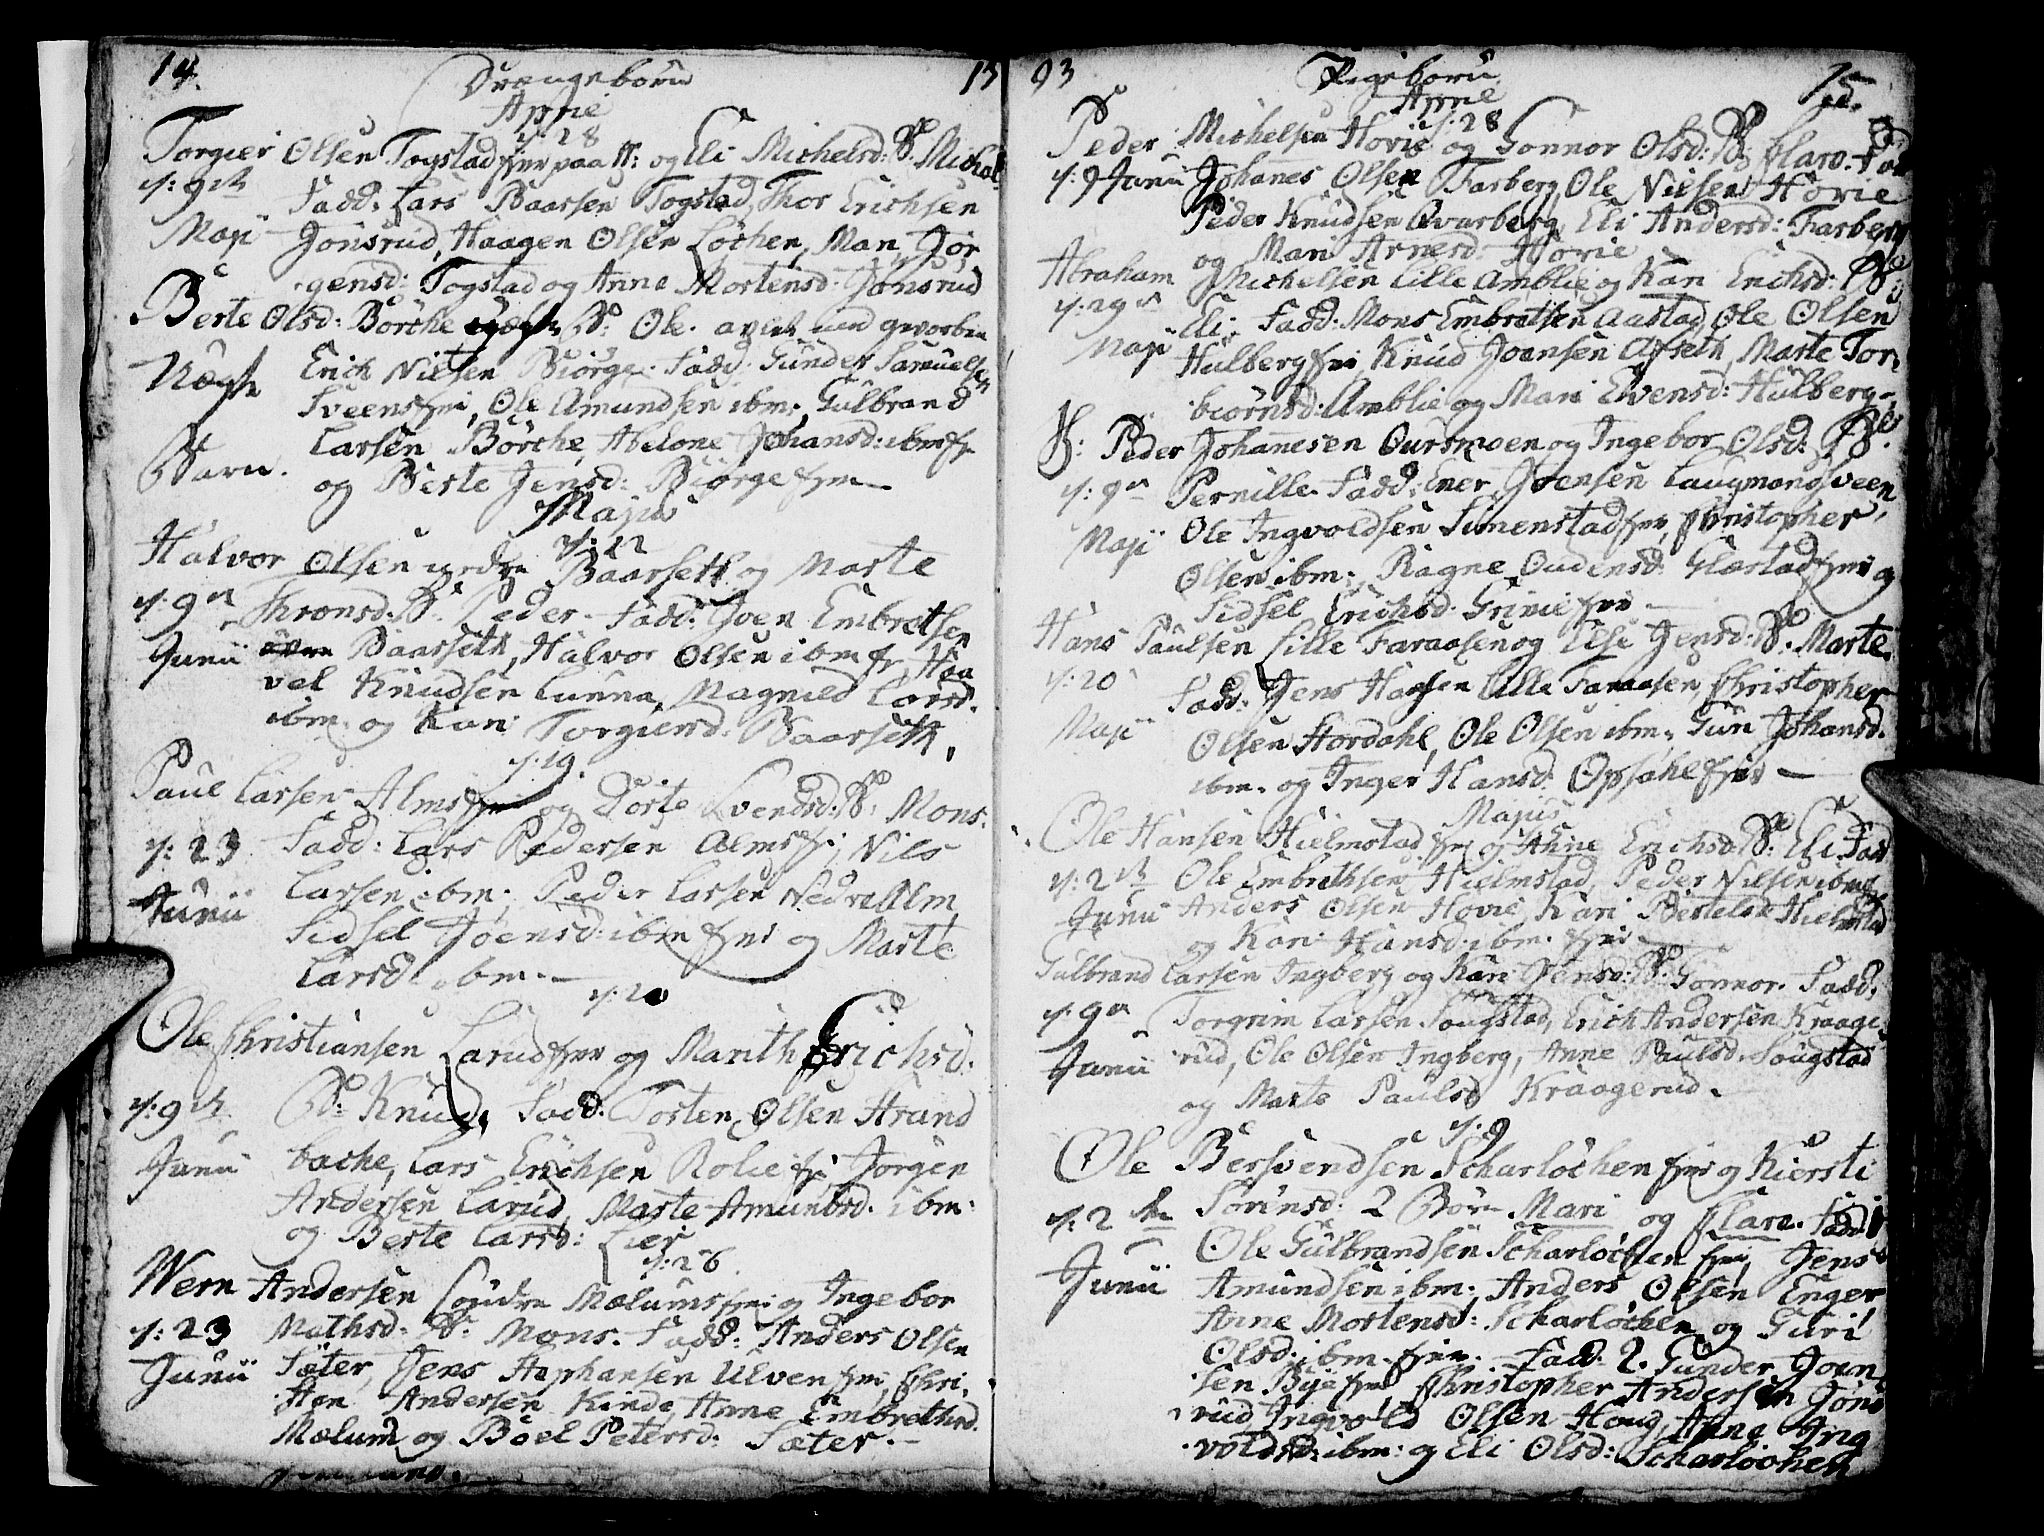 14.
Drengebörn
15
Aprie
d: 28
Torgier Olsen Togstad fier paa H: og Eli Michelsd: B: Michel
d: 9de Fadd: Lars Baarsen Togstad, Thor Erichsen
Maji Jonsrud, Haagen Olsen Lochen, Mari Jör
gensd: Togstad og Anne Mortensd: Jonsrud
Berte Olsd: Börche B: Ole. avlet med gvorben
Uægte Erich Nielsen Biörge. Fadd: Gunder Samuels
Sveens eni, Ole Amundsen ibm, Gulbrand
Barn. Larsen Börche, Abelone Johansd: ibm
og Berte Jensd: Biörge
Majus
d: 12
Halvor Olsen nedre Baarseth og Marte
d: 9de Thronsd: B: Peder. Fadd: Joen Embretsen
Junii Baarseth, Halvor Olsen ibm, Haa
vel Knudsen Lunna, Magnild Larsd.
ibm. og Kari Torgiersd. Baarseth.
d: 19.
Paul Larsen Alms og Dorte Svendsd: B: Mons.
d: 23 Fadd: Lars Pedersen Alms, Nils
Junii Larsen ibm: Peder Larsen Nedre Alm
Sidsel Joensd: ibm og Marte
Larsd ibm.
d: 20
Ole Christiansen Larud og Marith Erichsd:
d: 9de B: Knud, Fadd: Torsten Olsen Strand
Junii bache, Lars Erichsen Rolie Jörgen
Andersen Larud, Marte Amundsd. ibm:
og Berte Larsd: Lier
d: 26
Wern Andersen Söndre Mælums og Ingebor
d: 23 Mathsd: B: Mons. Fadd: Anders Olsen
Junii Sæter, Jens Stephansen Ulven, Chri
sten Andersen Kinde, Anne Embrethsd.
Mælum og Boel Petersd: Sæter.
93
Pigebörn
15.
Aprie
d: 28
Peder Michelsen Hovie og Gonnor Olsd: B: Clare. Fad
d: 9 Junii Johanes Olsen Farberg, Ole Nielsen Hovie
Peder Knudsen Qvarberg, Eli Andersd: Farberg
og Mari Arnesd: Hovie
Abraham Michelsen Lille Amblie og Kari Erichsd: B:
d: 29de Eli. Fadd: Mons Embretsen Aastad, Ole Olsen
Maji Hulberg, Knud Joansen Afseth, Marte Tor
biörnsd: Amblie og Mari Evensd: Hulberg.
H: Peder Johanesen Oursmoen og Ingebor Olsd: B:
d: 9de Pernille. Fadd: Ener Joensen Laugmandsveen
Maji Ole Ingvoldsen Simenstad, Christopher
Olsen ibm:, Ragne Oudensd: Glæstad og
Sidsel Erichsd. Grinie
Hans Paulsen Lille Faraasen og Else Jensd: B: Marte.
d: 20 Fadd: Jens Hansen Lille Faraasen, Christopher
Maji Olsen Stordahl, Ole Olsen ibm, Gun Johansd.
ibm. og Inger Hansd: Opsahl
Majus
Ole Hansen Hielmstad og Anne Erichsd: B: Eli. Fad
d: 2de Ole Embrethsen Hielmstad, Peder Nilsen ibm
Junii Anders Olsen Hovie, Kari Bertelsd Hielmstad
og Kari Hansd: ibm.
Gulbrand Larsen Ingberg og Kari Jensd: B: Gonnor. Fadd:
d: 9de Torgrim Larsen Sougstad, Erich Andersen Kraage
Junii rud, Ole Olsen Ingberg, Anne Paulsd. Sougstad
og Marte Paulsd Kraagerud.
d: 9
Ole Bersvendsen Scharlöchen og Kiersti
d: 2de Sörensd: 2 Börn Mari og Clare. Fadd: 1
Junii Ole Gulbrandsen Scharlöchen, Jens
Amundsen ibm: Anders Olsen Enger
Anne Mortensd: Scharlöchen og Guri
Olsd: ibm. Fadd: 2. Gunder Joen
sen Bye Christopher Andersen Jons
rud, Ingvold Olsen Houg, Anne Ing
voldsd: ibm: og Eli Olsd: Scharlöchen